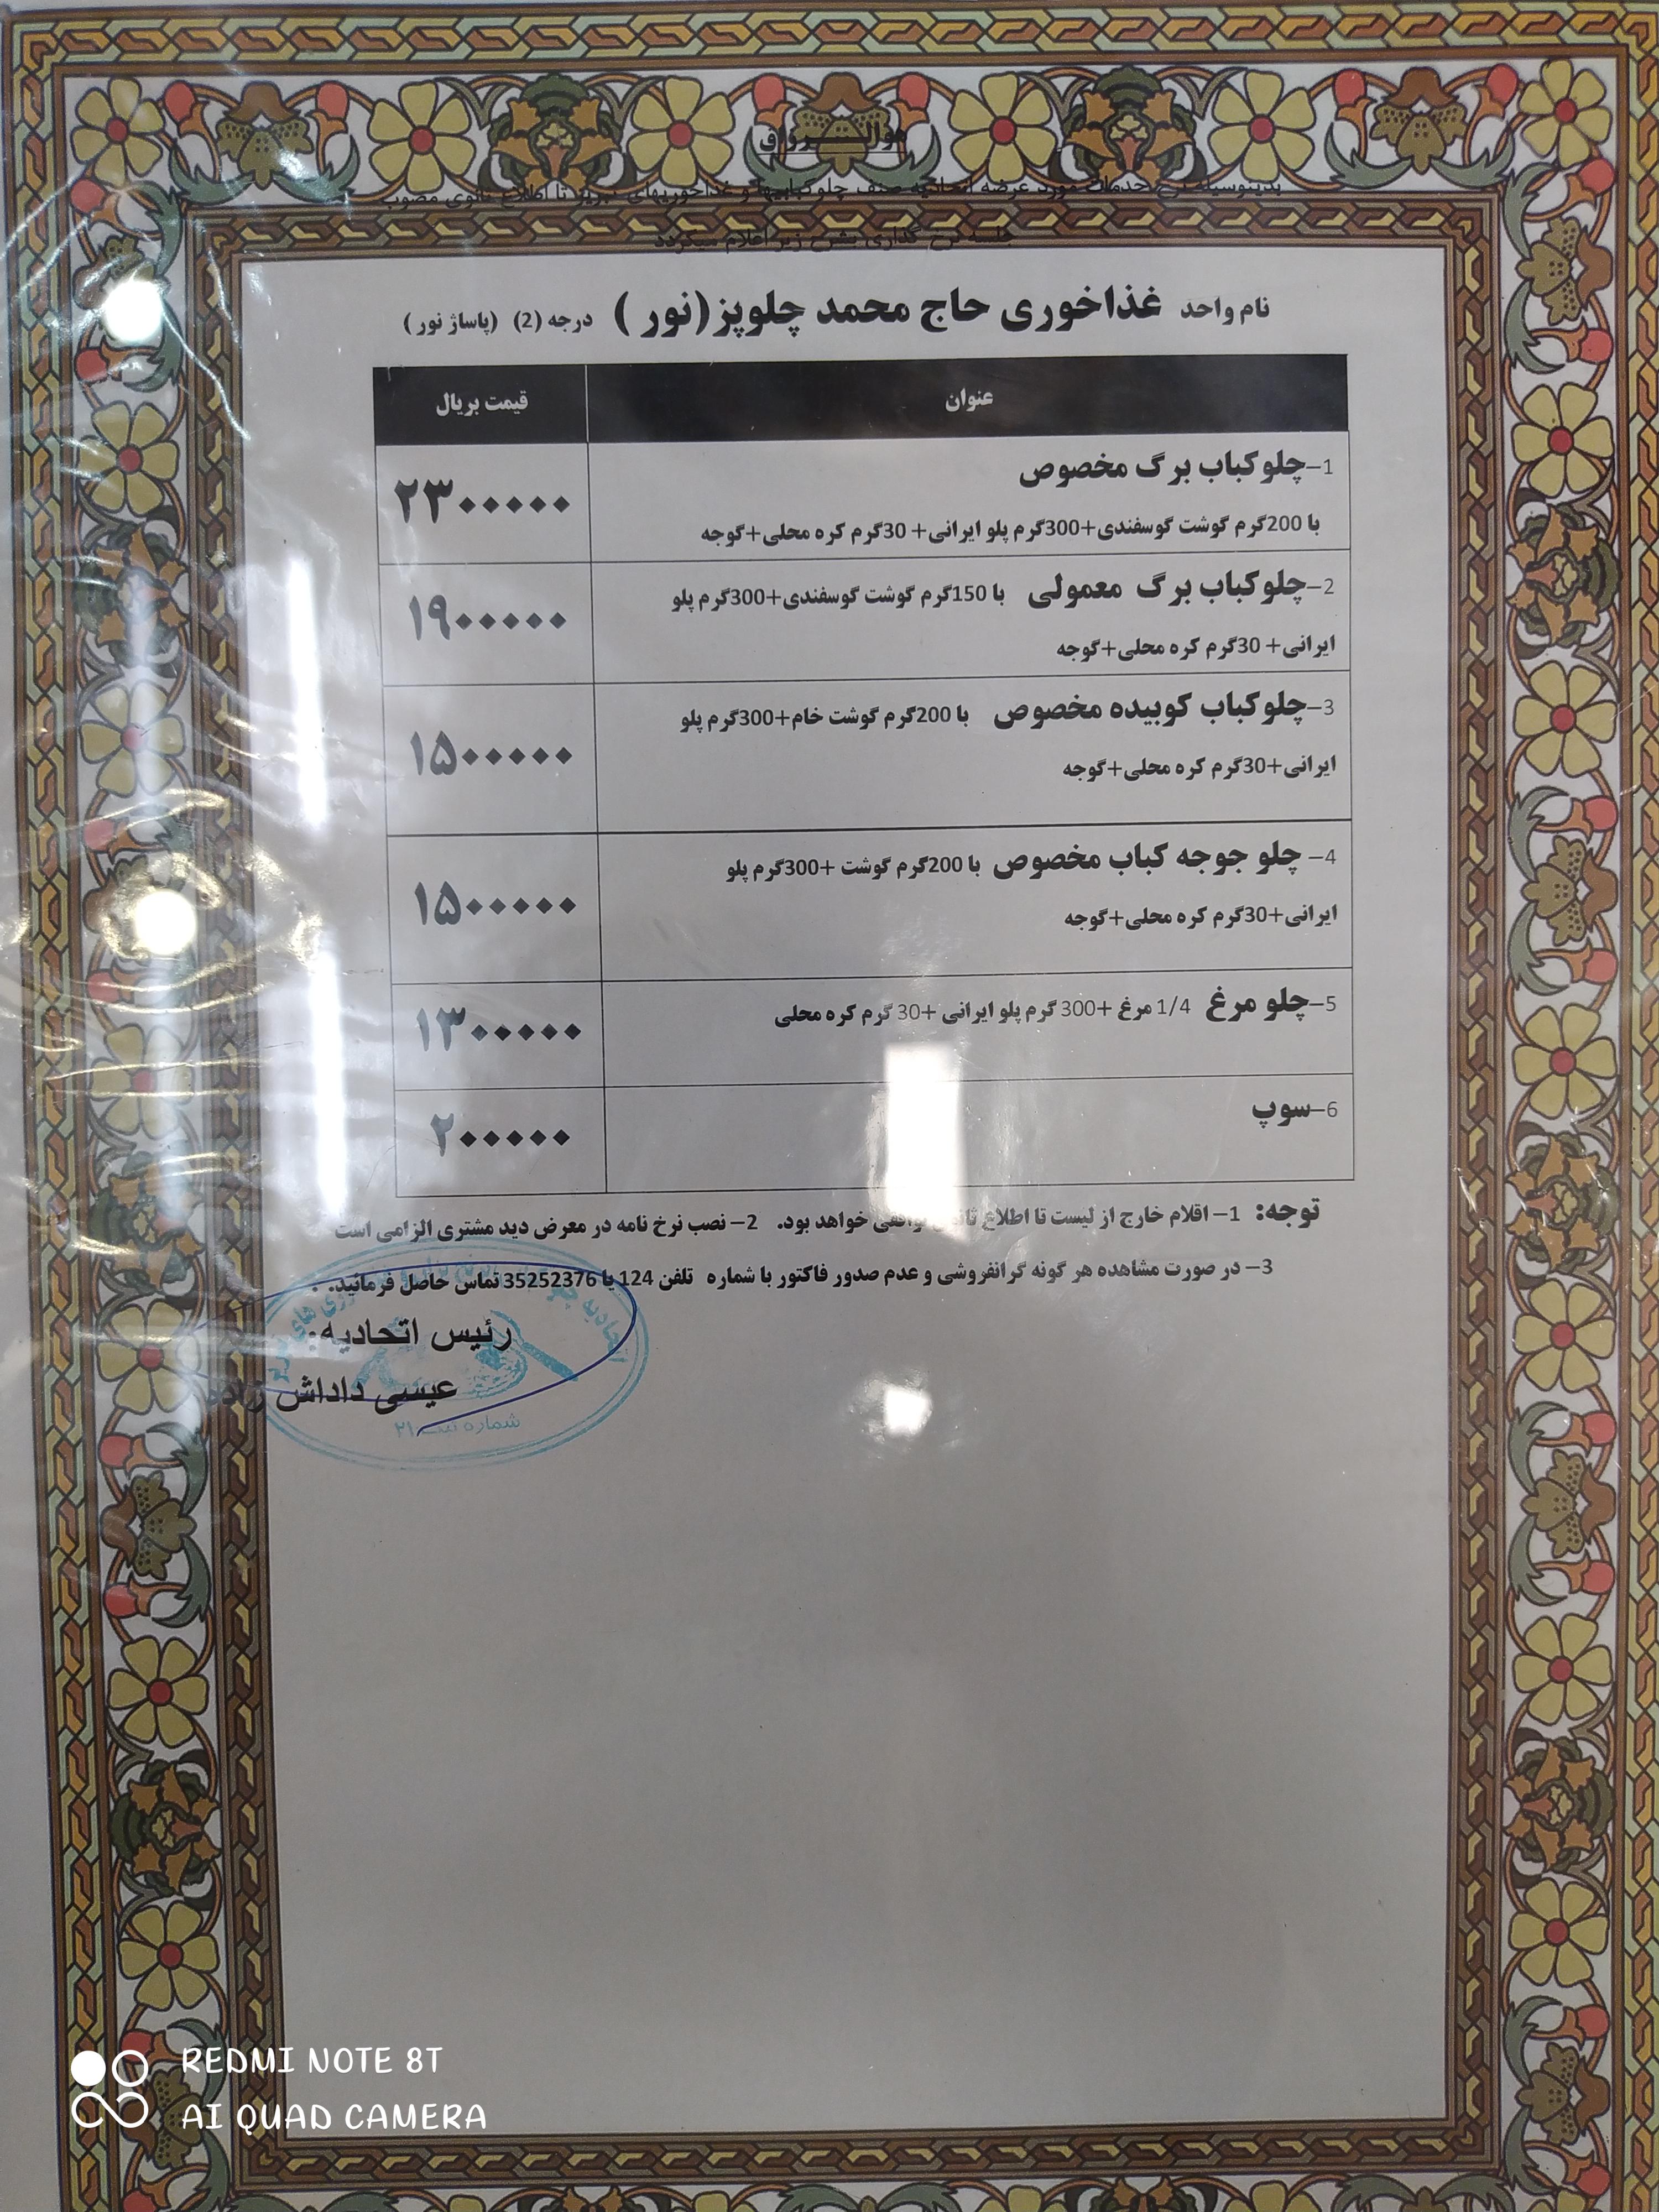 هوالــــرزاق
بدینوسیله نرخ خدمات مورد عرضه اتحادیه صنف چلوکبابیها و غذاخوریهای تبریز تا اطلاع ثانوی مصوب
جلسه نرخ گذاری بشرح زیر اعلام میگردد
نام واحد غذاخوری حاج محمد چلوپز(نور ) درجه (2) (پاساژ نور )
عنوان قیمت بریال
1–چلوکباب برگ مخصوص
با 200گرم گوشت گوسفندی+300گرم پلو ایرانی+ 30گرم کره محلی+گوجه
۲۳۰۰۰۰۰
2–چلوکباب برگ معمولی با 150گرم گوشت گوسفندی+300گرم پلو
ایرانی+ 30گرم کره محلی+گوجه
۱۹۰۰۰۰۰
3–چلوکباب کوبیده مخصوص با 200گرم گوشت خام+300گرم پلو
ایرانی+30گرم کره محلی+گوجه
۱۵۰۰۰۰۰
4– چلو جوجه کباب مخصوص با 200گرم گوشت +300گرم پلو
ایرانی+30گرم کره محلی+گوجه
۱۵۰۰۰۰۰
5–چلو مرغ 1/4 مرغ +300 گرم پلو ایرانی +30 گرم کره محلی
۱۳۰۰۰۰۰
6–سوپ
۲۰۰۰۰۰
توجه: 1– اقلام خارج از لیست تا اطلاع ثانوی توافقی خواهد بود. 2– نصب نرخ نامه در معرض دید مشتری الزامی است
3– در صورت مشاهده هر گونه گرانفروشی و عدم صدور فاکتور با شماره تلفن 124 یا 35252376 تماس حاصل فرمائید. .
رئیس اتحادیه:
عیسی داداش زاده
اتحادیه
شماره ثبت ۲۱
REDMI NOTE 8T
AI QUAD CAMERA